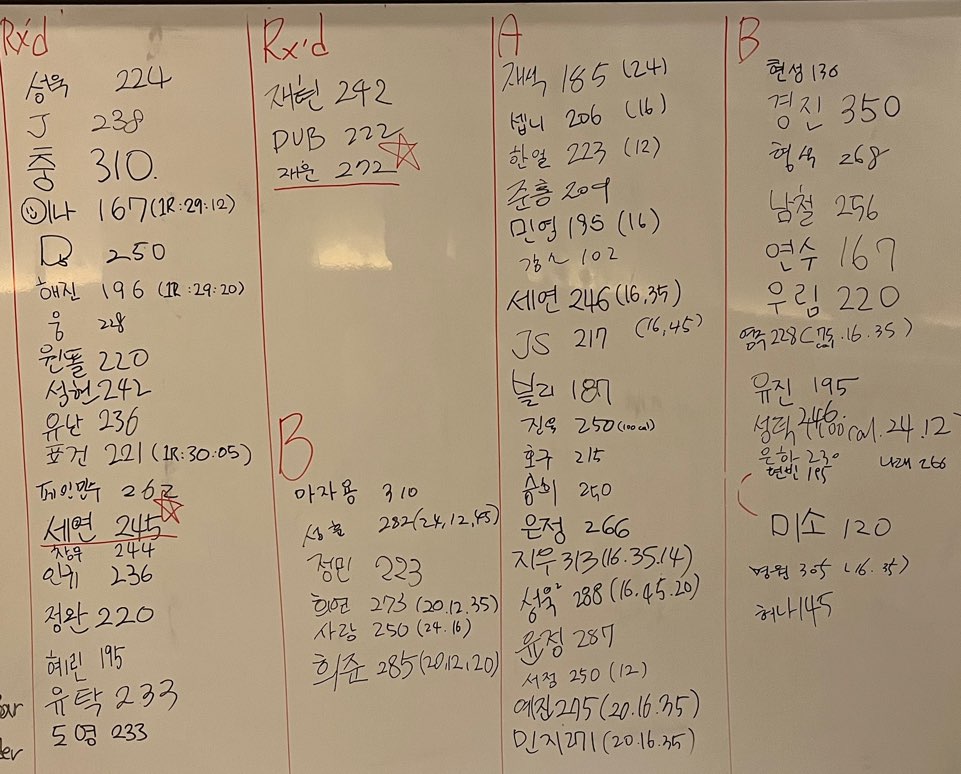 Rx'd
성욱 224
J 238
충 310.
이나 167 (1R:29:12)
D 250
해진 196 (1R:29:20)
웅 228
원똘 220
성헌 242
유난 236
표건 221 (1R:30:05)
페인만수 262
세연 245
창우 244
인규 236
정완 220
혜린 195
유탁 233
도영 233
Rx'd
재현 242
DUB 222
재윤 272
B
아자용 310
성훈 282 (24,12,45)
정민 223
희연 273 (20.12.35)
사랑 250 (24.16)
희준 285 (20,12,20)
A
재석 185 (24)
셉니 206 (16)
한얼 223 (12)
준홍 209
민영 195 (16)
102
세연 246 (16,35)
JS 217 (16,45)
블리 187
진욱 250 (100cal)
호구 215
승희 250
은정 266
지우 313 (16.35.14)
성욱² 288 (16.45.20)
윤정 287
서정 250 (12)
예진 275 (20.16.35)
민지 271 (20.16.35)
B
현성 130
경진 350
형석 268
남철 256
연수 167
우림 220
영주 228 16.35)
유진 195
성탁 246 100cal.24.12
은학 230
현빈 195 나래 266
미소 120
명원 305 (16.35)
허나 145